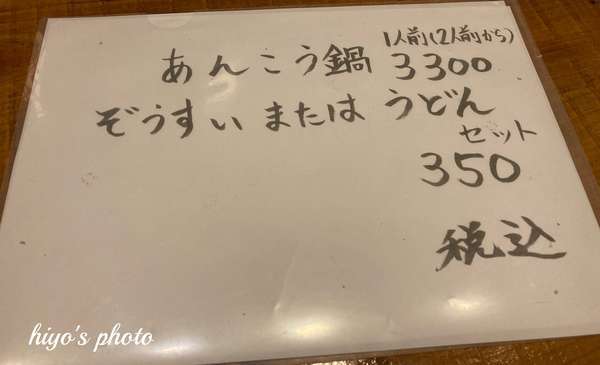 1人前(2人前から)
あんこう鍋 3300
ぞうすい または うどん
セット
350
税込
hiyo's photo